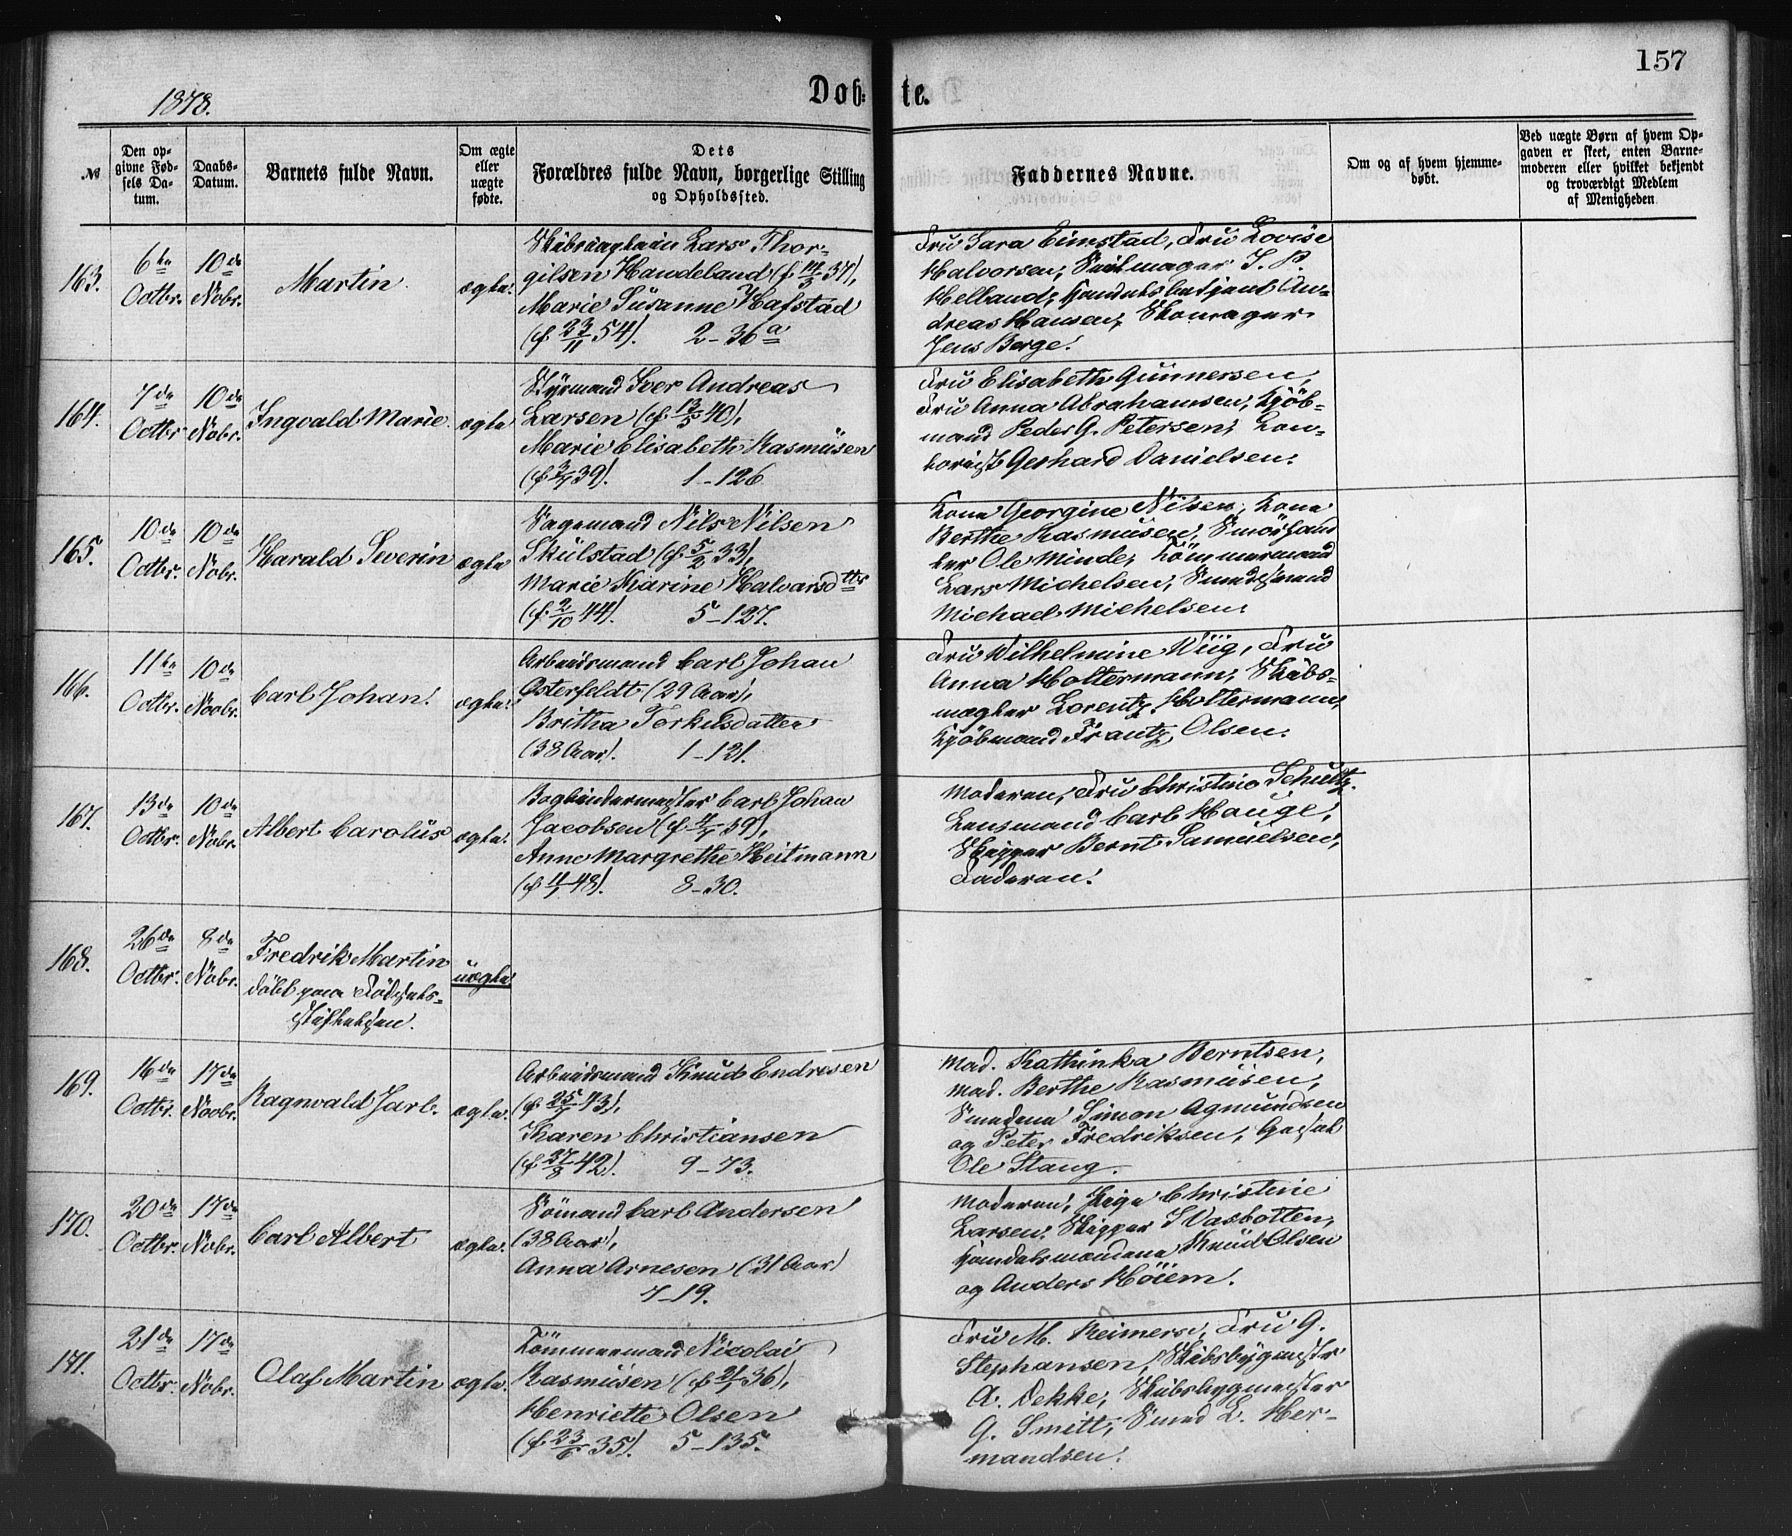 157
1878.
Døb- te.
№
Den op-
givne Fød-
sels Da-
tum.
Daabs-
Datum.
Barnets fulde Navn.
Om ægte
eller
uægte
fødte.
Dets
Forældres fulde Navn, borgerlige Stilling
og Opholdssted.
Faddernes Navne.
Om og af hvem hjemme-
døbt.
Ved uægte Børn af hvem Op-
gaven er skeet, enten Barne-
moderen eller hvilket bekjendt
og troværdigt Medlem
af Menigheden
163.
6te
Octbr.
10de
Novbr.
Martin
ægte.
Skibscaptain Lars Thor-
gilsen Handeland (f. 37),
Marie Susanne Hafstad
(f. 23/11 54). 2-36a
Fru Sara Eimstad, Fru Lovise
Halvorsen, Seilmager I. P.
Helland, Handelsbetjent An-
dreas Hansen, Skomager
Jens Berge.
164.
7de
Octbr
10de
Novbr.
Ingvald Marie
ægte
Styrmand Iver Andreas
Larsen (f. 13/5 40),
Marie Elisabeth Rasmusen
(f. 39). 1-126
Fru Elisabeth Gunnersen,
Fru Anna Abrahamsen, Kjøb-
mand Peder G. Petersen, Con-
torist Gerhard Danielsen.
165.
10de
Octbr.
10de
Novbr.
Harald Severin
ægte
Sagemand Nils Nilsen
Skulstad (f. 5/2 33),
Marie Karine Halvarsdtter
(f. 2/10 44). 5-127.
Kone Georgine Nilsen, Kone
Berthe Rasmusen, Smørhand-
ler Ole Minde, Tømmermand
Lars Michelsen, Smedesvend
Michael Michelsen.
166.
11te
Octbr.
10de
Novbr.
Carl Johan.
ægte.
Arbeidsmand Carl Johan
Osterfeldt (29 Aar),
Britha Terkelsdatter
(38 Aar). 1-121.
Fru Wilhelmine Wiig, Fru
Anna Holtermann, Skibs-
mægler Lorentz Holtermann,
Kjøbmand Frantz Olsen.
167.
13de
Octbr.
10de
Novbr.
Albert Carolus
ægte.
Bogbindermester Carl Johan
Jacobsen (f. 39),
Anne Margrethe Heitmann
(f. 48). 8-30.
Moderen, Fru Christine Schultz,
Lensmand Carl Hauge,
Skipper Bernt Samuelsen,
Faderen.
168.
26de
Octbr.
8de
Novbr.
Fredrik Martin
døbt paa Fødsels-
stiftelsen.
uægte
169.
16de
Octbr.
17de
Novbr.
Ragnvald Jarl.
ægte.
Arbeidsmand Knud Endresen
(f. 43),
Karen Christiansen
(f. 27/8 42). 9-73.
Mad. Kathinka Berntsen,
Mad. Berthe Rasmusen,
Smedene Simon Agmundsen
og Peter Fredriksen, Gasbet.
Ole Stang.
170.
20de
Octbr.
17de
Novbr.
Carl Albert
ægte.
Sømand Carl Andersen
(38 Aar),
Anna Arnesen (31 Aar)
7-19.
Moderen, Pige Christine
Larsen, Skipper I Vasbotten,
Handelsmændene Knud Olsen
og Anders Høiem.
171.
21de
Octbr.
17de
Novbr.
Olaf Martin
ægte.
Tømmermand Nicolai
Rasmusen (f. 36),
Henriette Olsen
(f. 23/6 35). 5-135.
Fru M. Reimers, Fru G.
Stephansen, Skibsbygmester
A. Dekke, Skibsbygmester
G. Smitt, Smed L. Her-
mandsen.